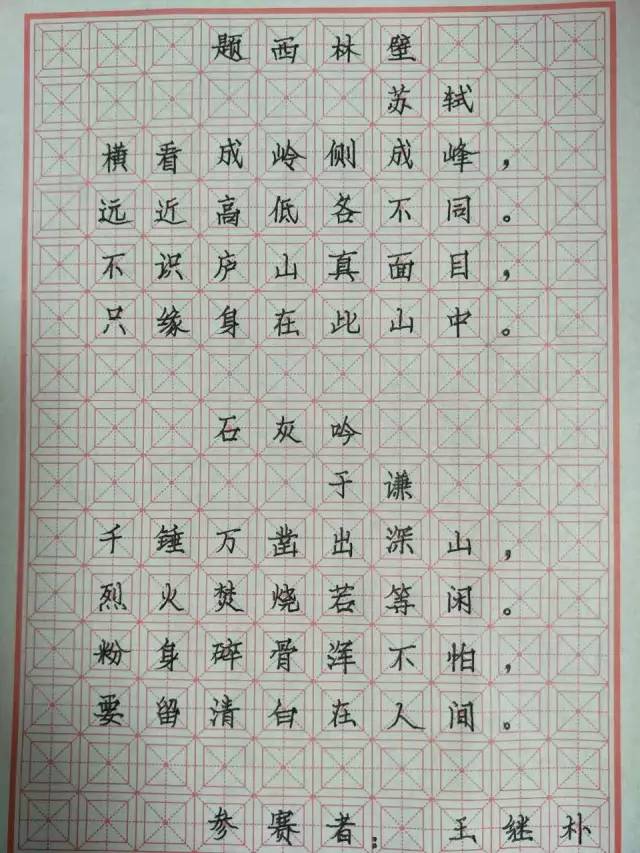 题西林壁
苏轼
横看成岭侧成峰，
远近高低各不同。
不识庐山真面目，
只缘身在此山中。
石灰吟
于谦
千锤万凿出深山，
烈火焚烧若等闲。
粉身碎骨浑不怕，
要留清白在人间。
参赛者：王继朴